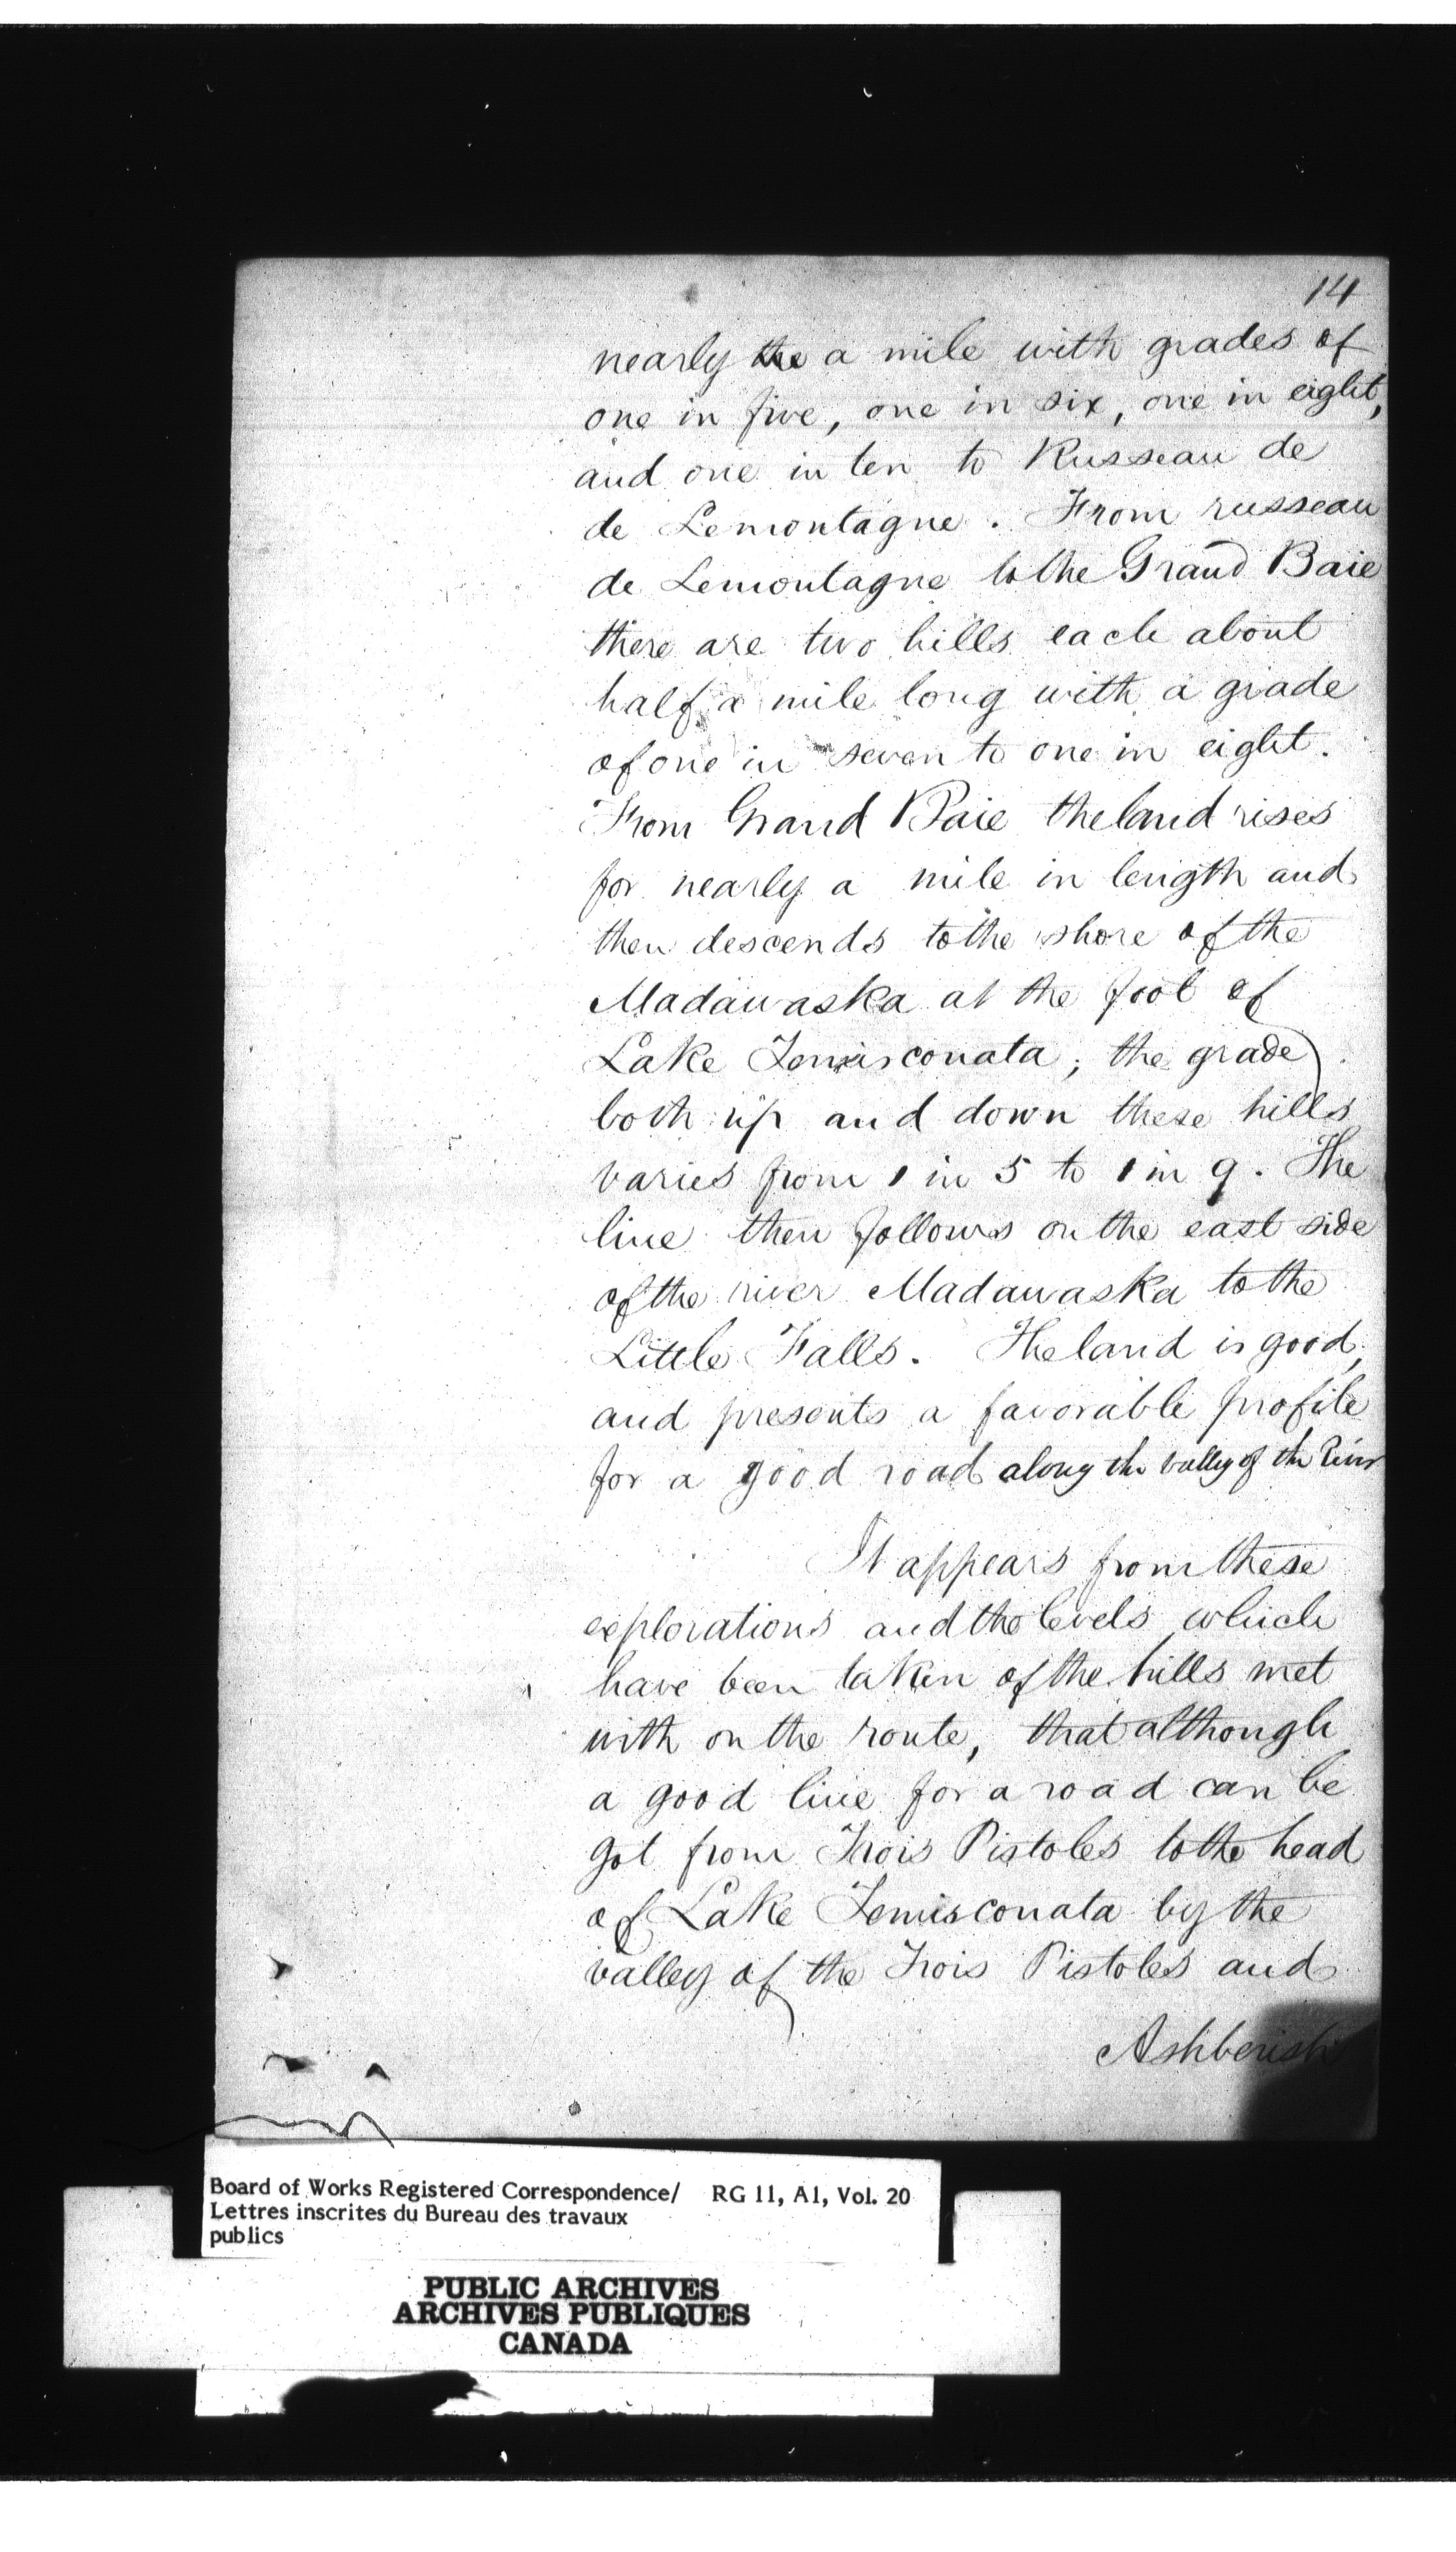 14
nearly the a mile with grades of
one in five, one in six, one in eight,
and one in ten to Russeau de
de Lemontagne. From russeau
de Lemontagne to the Grand Baie
there are two hills each about
half a mile long with a grade
of one in seven to one in eight.
From Grand Baie the land rises
for nearly a mile in length and
then descends to the shore of the
Madawaska at the foot of
Lake Temisconata; the grade
both up and down these hills
varies from 1 in 5 to 1 in 9. The
line then follows on the east side
of the river Madawaska to the
Little Falls. The land is good,
and presents a favorable profile
for a good road along the valley of the River
It appears from these
explorations and the levels which
have been taken of the hills met
with on the route, that although
a good line for a road can be
got from Trois Pistoles to the head
of Lake Temisconata by the
valley of the Trois Pistoles and
Ashberish
Board of Works Registered Correspondence/ RG 11, A1, Vol. 20
Lettres inscrites du Bureau des travaux
publics
PUBLIC ARCHIVES
ARCHIVES PUBLIQUES
CANADA